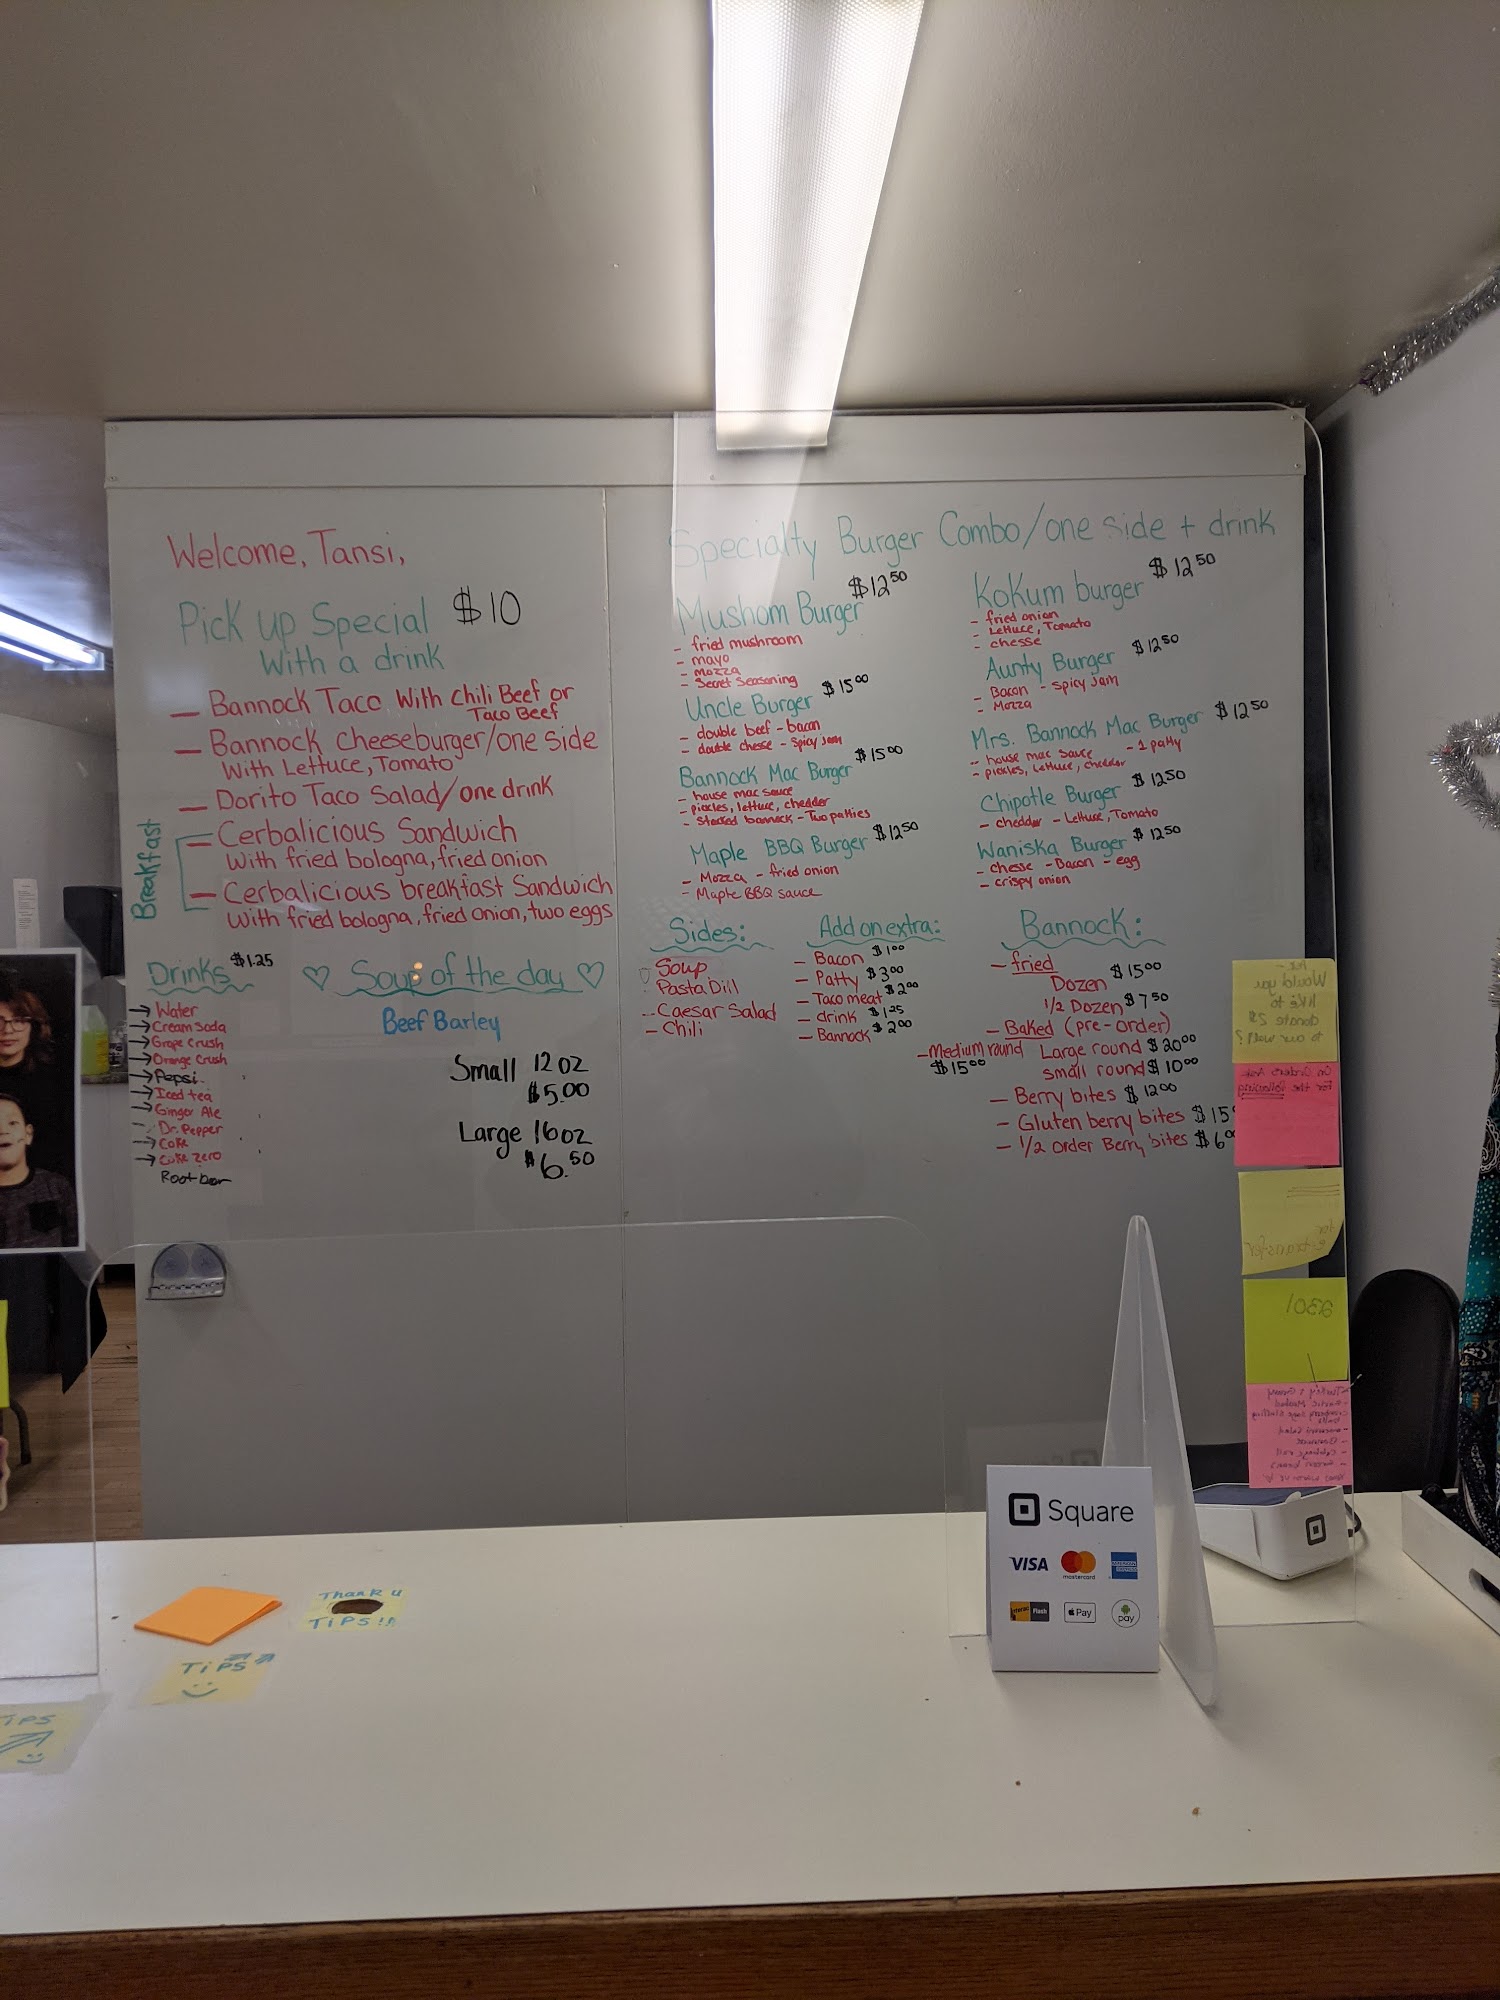 Welcome, Tansi,
Pick up Special $10
With a drink
- Bannock Taco With chili Beef or
Taco Beef
- Bannock cheeseburger/one side
With Lettuce, Tomato
- Dorito Taco Salad/one drink
Breakfast
- Cerbalicious Sandwich
With fried bologna, fried onion
- Cerbalicious breakfast Sandwich
With fried bologna, fried onion, two eggs
Drinks $1.25
→ Water
→ Cream Soda
→ Grape Crush
→ Orange Crush
→ Pepsi
→ Iced tea
→ Ginger Ale
Dr. Pepper
→ Coke
→ Coke zero
Root bear
♡ Soup of the day ♡
Beef Barley
Small 12oz
$5.00
Large 16oz
$6.50
Specialty Burger Combo/one side + drink
Mushom Burger $12.50
- fried mushroom
- mayo
- Mozza
- Secret Seasoning
Uncle Burger $15.00
- double beef - bacon
- double chesse - spicy jam
Bannock Mac Burger $15.00
- house mac sauce
- pickles, lettuce, chedder
- Stacked bannock - Two patties
Maple BBQ Burger $12.50
- Mozza - fried onion
- Maple BBQ sauce
KoKum burger $12.50
- fried onion
- Lettuce, Tomato
- chesse
Aunty Burger $12.50
- Bacon - spicy Jam
- Mozza
Mrs. Bannock Mac Burger $12.50
- house mac sauce - 1 patty
- pickles, lettuce, chedder
Chipotle Burger $12.50
- chedder - Lettuce, Tomato
Waniska Burger $12.50
- chesse - Bacon - egg
- crispy onion
Sides:
Soup
Pasta Dill
- Caesar Salad
- Chili
Add on extra:
- Bacon $1.00
- Patty $3.00
- Taco meat $2.00
- drink $1.25
- Bannock $2.00
Bannock:
- fried
Dozen $15.00
1/2 Dozen $7.50
- Baked (pre-order)
- Medium round $15.00
Large round $20.00
small round $10.00
- Berry bites $12.00
- Gluten berry bites $15
- 1/2 order Berry bites $6.00
Would you
like to
donate 2$
to our wall?
On Orders Ask
For the following
for
e-transfer
Square
VISA
mastercard
AMERICAN EXPRESS
Interac Flash
Pay
pay
Thank u
TIPS!!
TiPS
TiPS